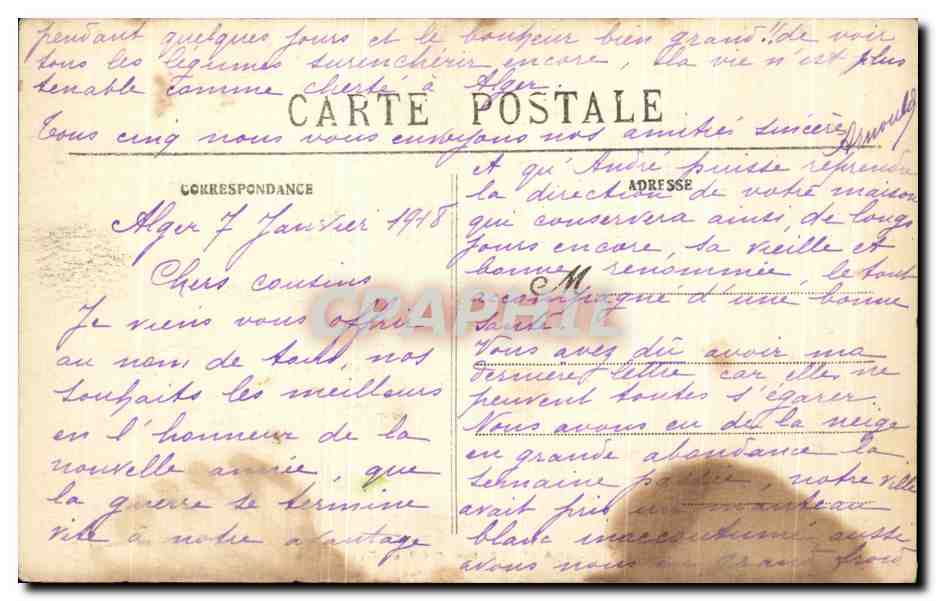 pendant quelques jours et le bonheur bien grand!! de voir
tous les légumes surenchérir encore, la vie n'est plus
tenable comme cherté à Alger.
CARTE POSTALE
Tous cinq nous vous envoyons nos amitiés sincères
CORRESPONDANCE
Alger 7 Janvier 1918
Chers cousins
Je viens vous offrir
au nom de tous, nos
souhaits les meilleurs
en l'honneur de la
nouvelle année, que
la guerre se termine
vite à notre avantage
ADRESSE
M
A qu'André puisse reprendre
la direction de votre maison
qui conservera ainsi, de longs
jours encore, sa vieille et
bonne renommée, le tout
accompagné d'une bonne
santé.
Vous avez dû avoir ma
dernière lettre car elles ne
peuvent toutes s'égarer.
Nous avons eu de la neige
en grande abondance la
semaine passée, notre ville
avait pris un manteau
blanc inaccoutumé, aussi
avons nous eu grand froid
CRAPHIL